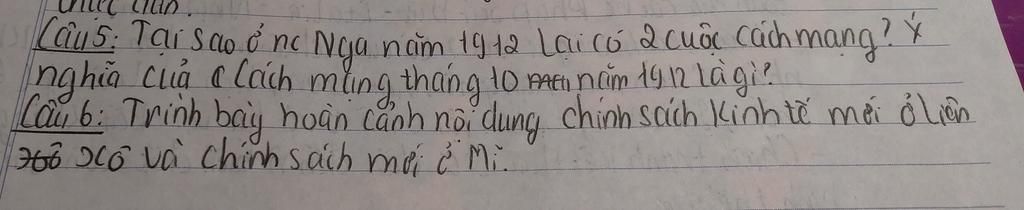 Câu 5: Tại sao ở nc Nga năm 1917 lại có 2 cuộc cách mạng? Ý
nghĩa của cách mạng tháng 10 năm 1917 là gì?
Câu 6: Trình bày hoàn cảnh nội dung chính sách kinh tế mới ở liên
xô và chính sách mới ở Mĩ.